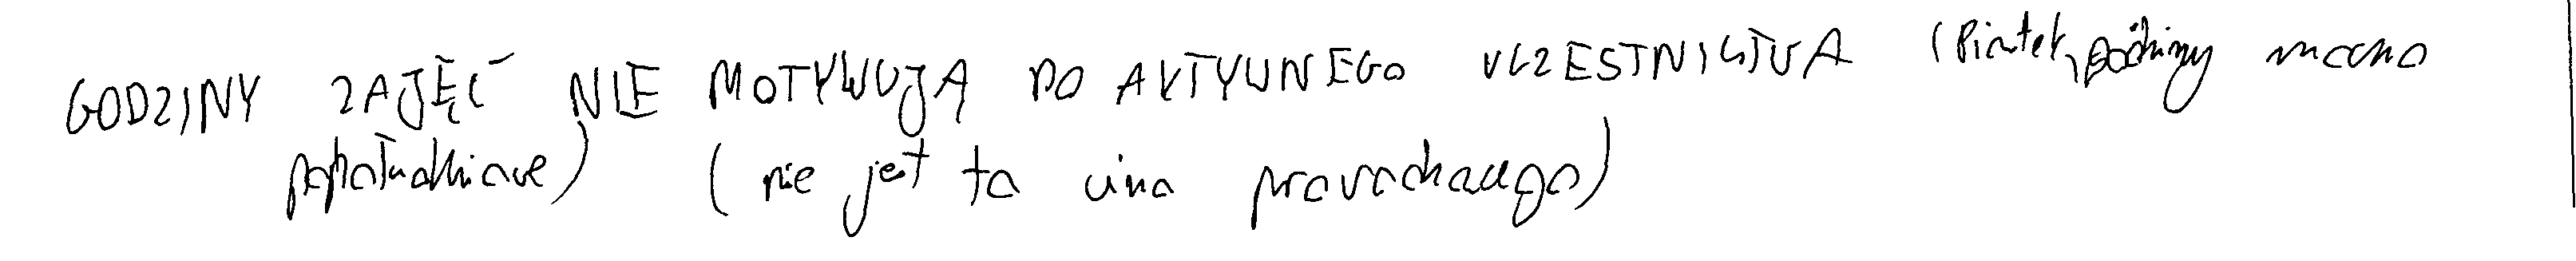 GODZINY ZAJĘĆ NIE MOTYWUJĄ DO AKTYWNEGO UCZESTNICTWA (Piątek, godziny mocno
popołudniowe) (nie jest to wina prowadzącego)